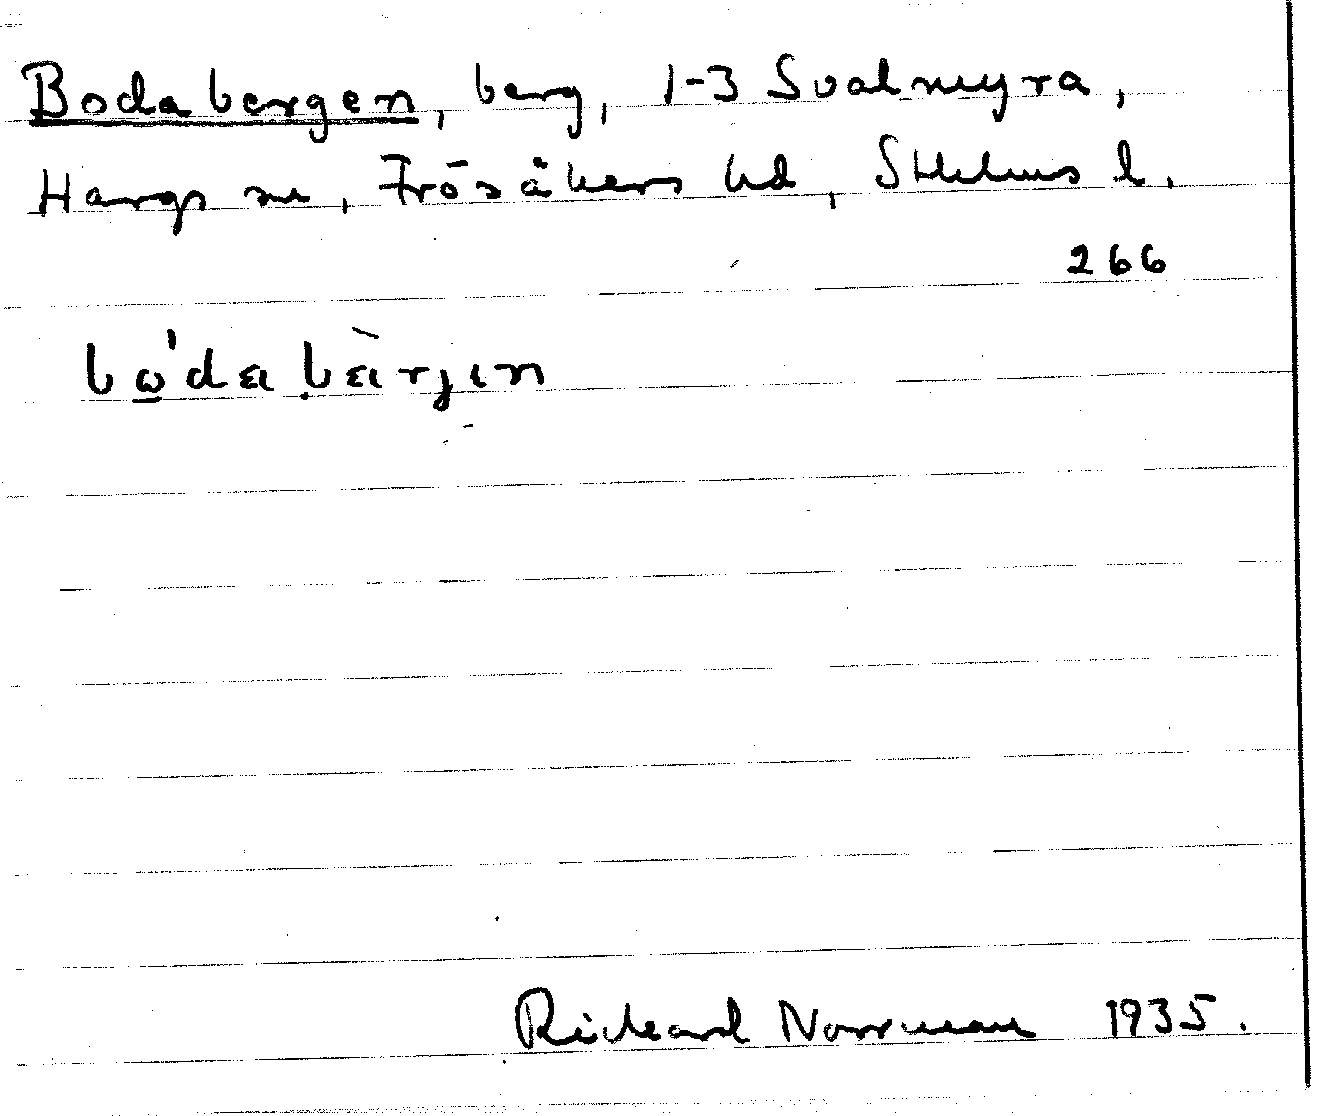 Bodabergen, berg, 1-3 Svalmyra,
Hargs sn, Frösåkers hd, Sthlms l.
266
bo̲'dabàrjın
Rickard Norrman 1935.